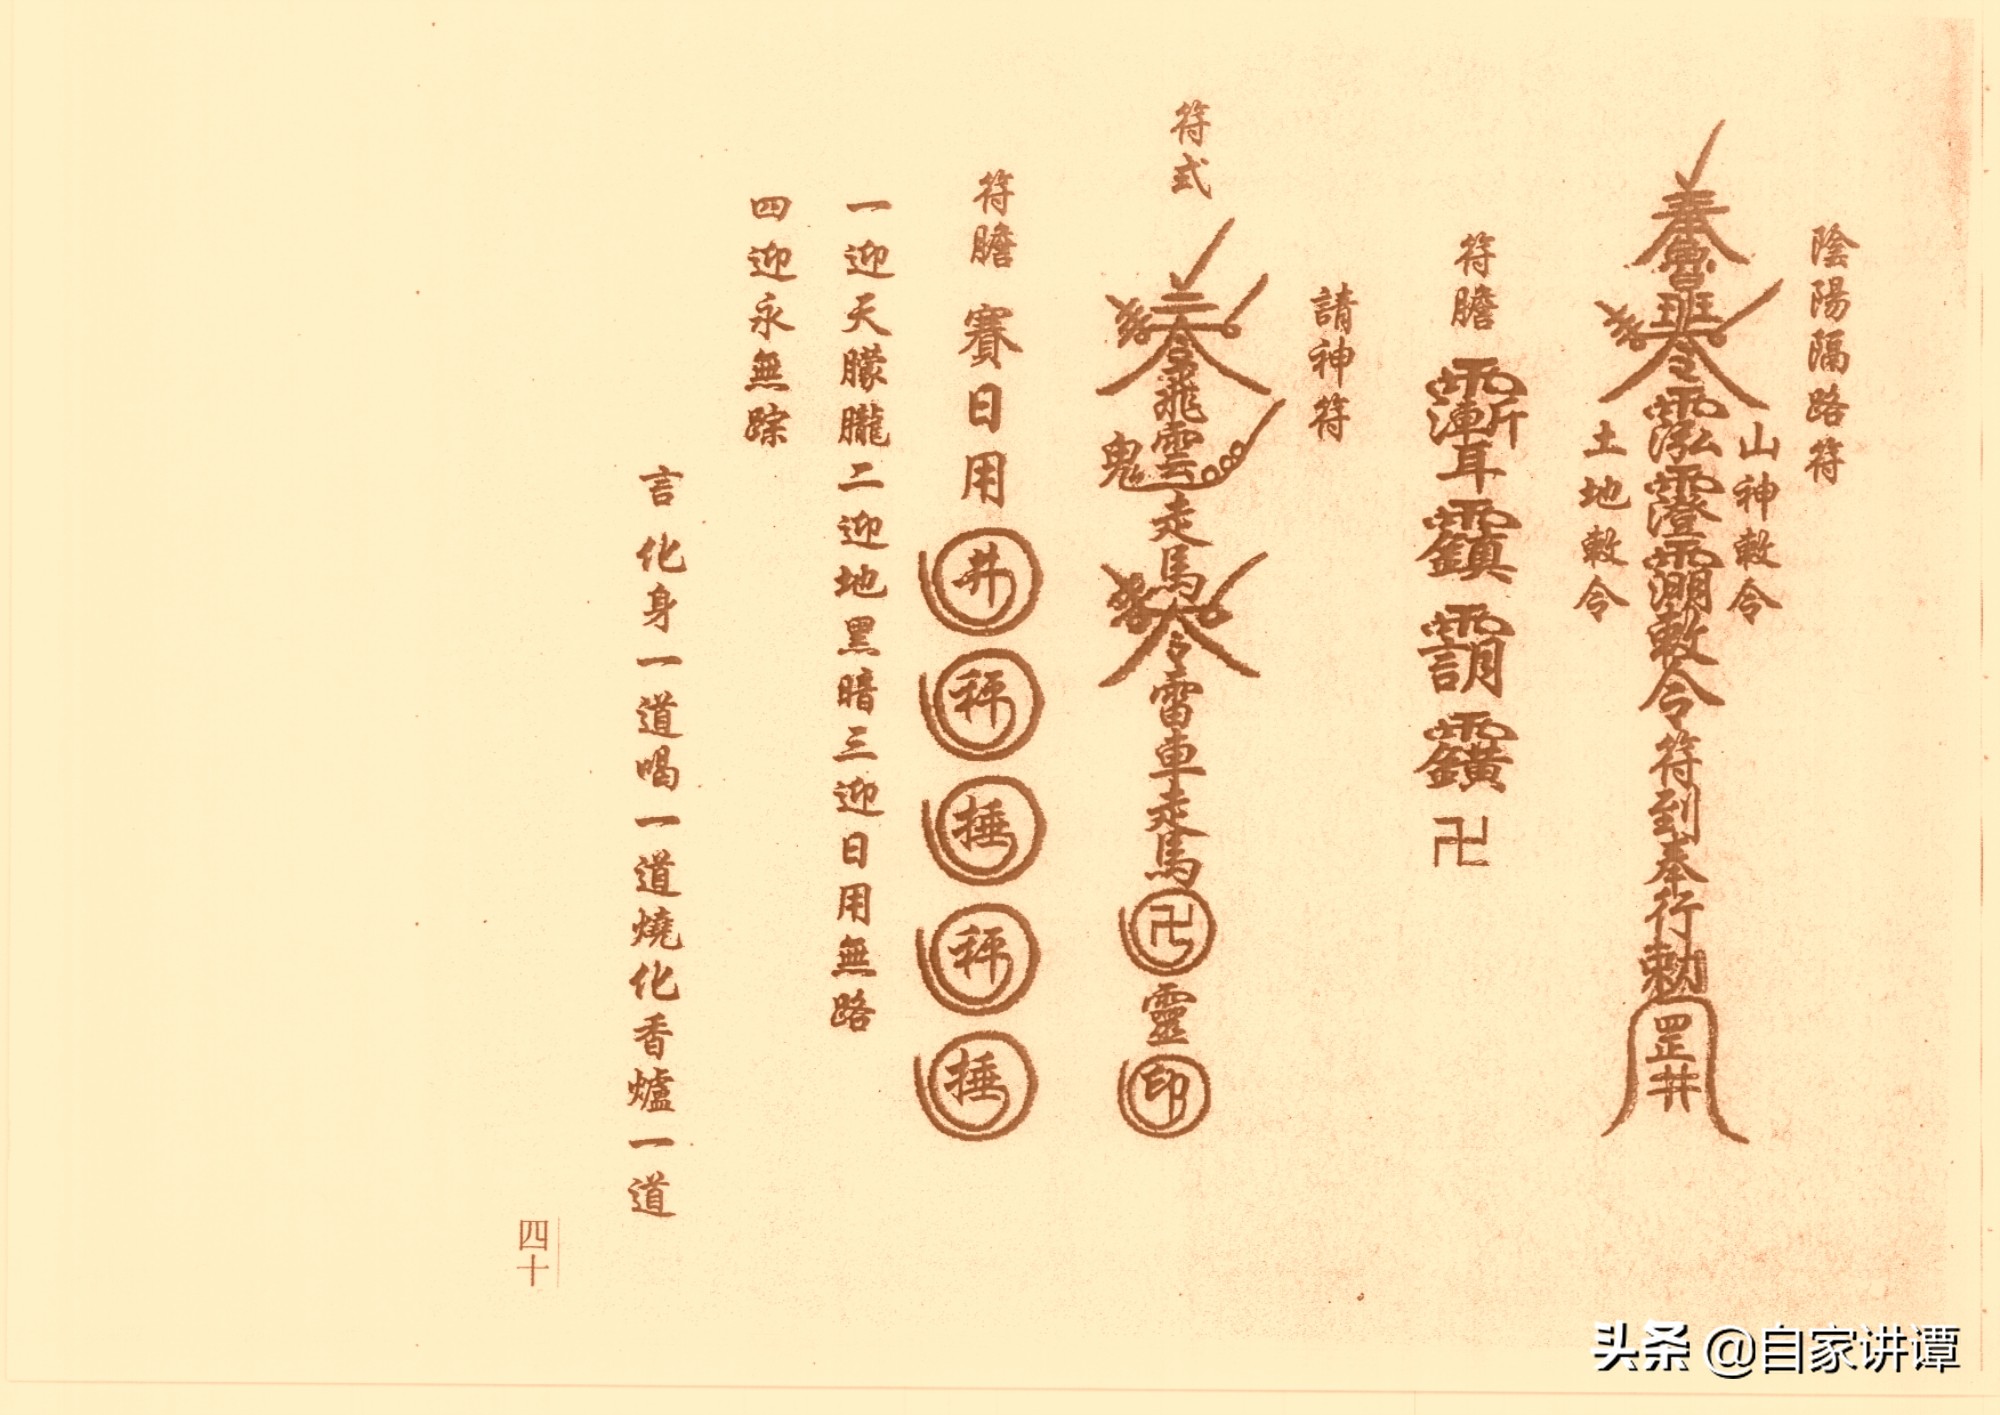 陰陽隔路符
山神敕令
魯班令敕令符到奉行勅罡井
土地敕令
符膽
卍
請神符
符式
令飛雲走馬令雷車走馬卍靈印
鬼
符膽 賽日用井秤捶秤捶
一迎天朦朧二迎地黑暗三迎日用無路
四迎永無踪
言化身一道喝一道燒化香爐一道
四十
头条 @自家讲谭